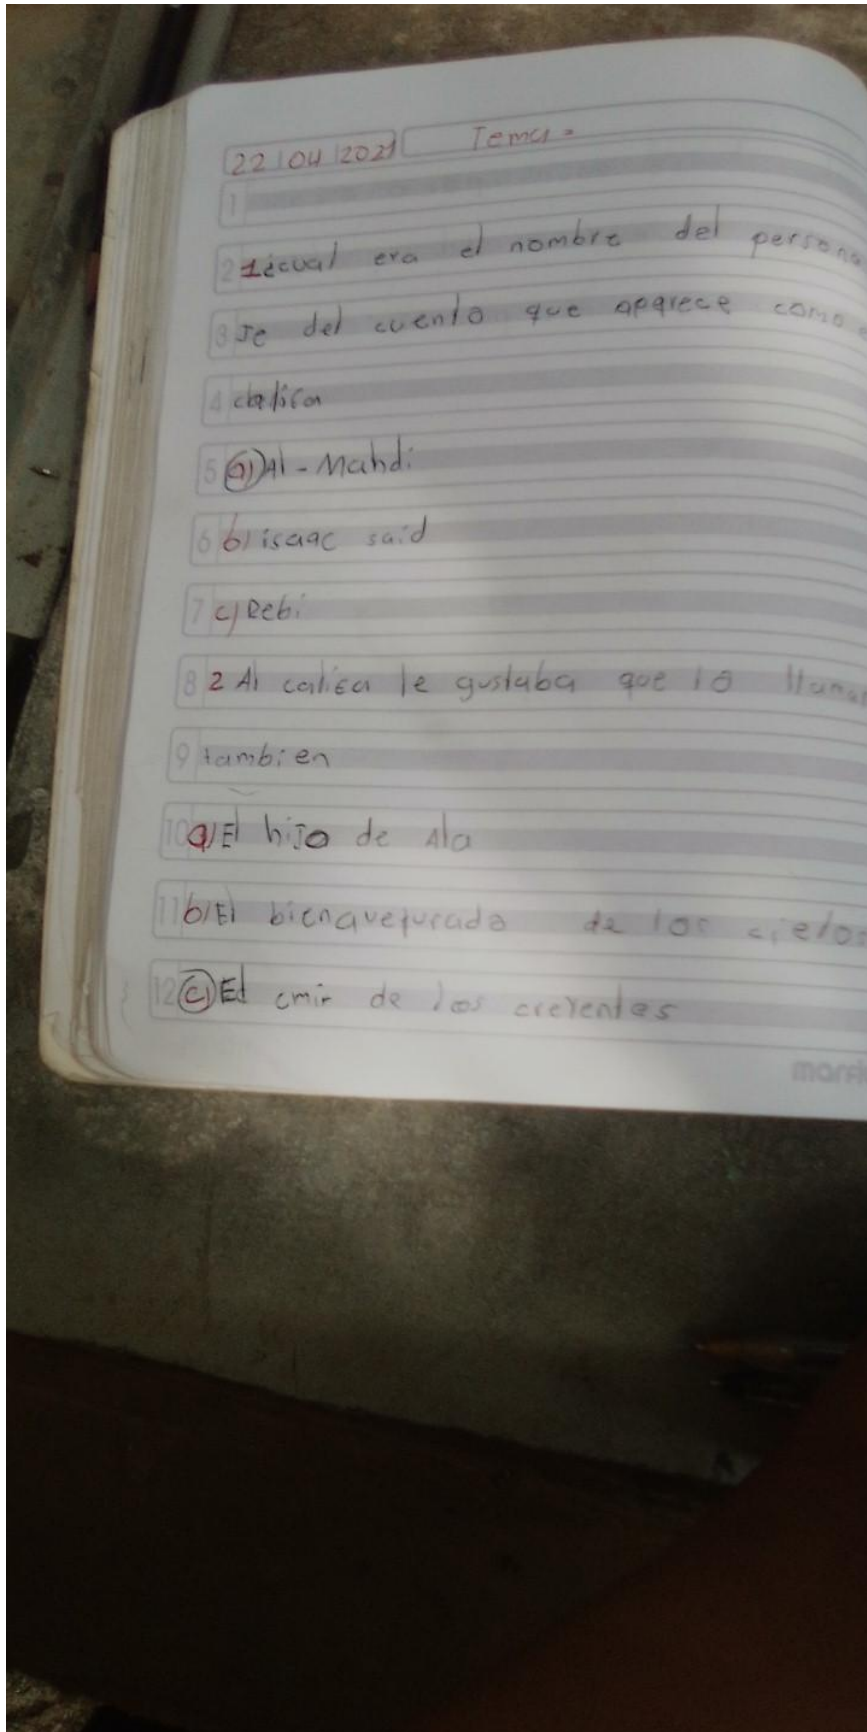 22 04 2021 Tema =
1
2 1¿cual era el nombre del persona
3 Je del cuento que aparece como
4 califa
5 a) Al-Mahdi
6 b) isaac said
7 c) Rebi
8 2 Al califa le gustaba que lo llama
9 tambien
10 a) El hijo de Ala
11 b) El
de los cielos
12 c) El emir de los creyentes